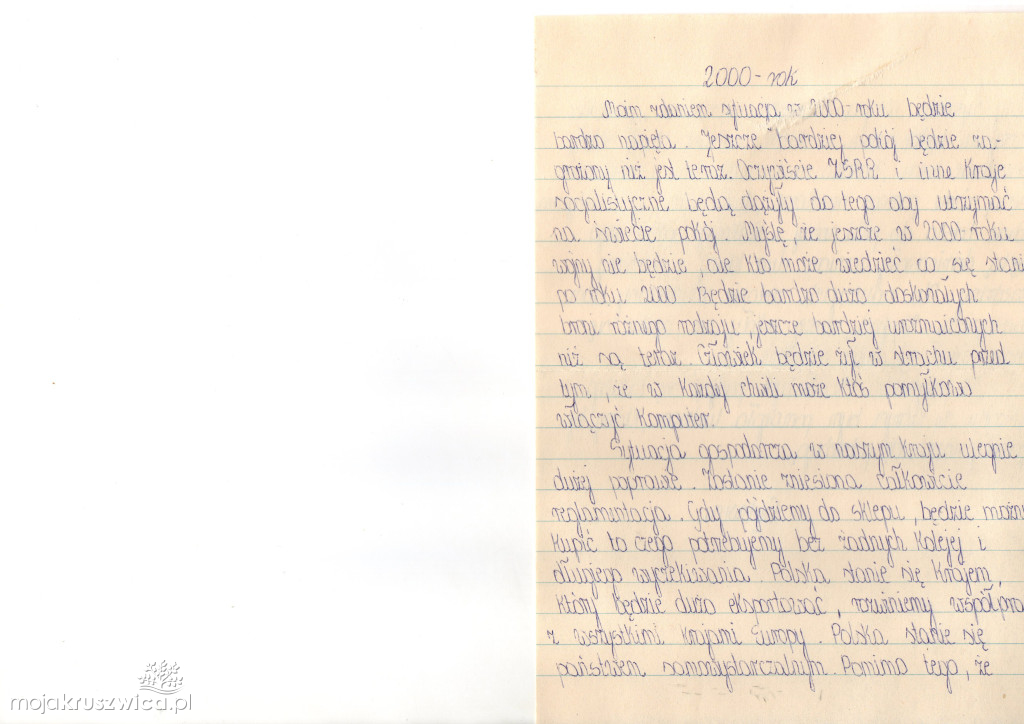 2000-rok
Moim zdaniem sytuacja w 2000-roku będzie
bardzo napięta. Jeszcze bardziej pokój będzie za-
grożony niż jest teraz. Oczywiście ZSRR i inne Kraje
socjalistyczne będą dążyły do tego aby utrzymać
na świecie pokój. Myślę, że jeszcze w 2000-roku
wojny nie będzie, ale Kto może wiedzieć co się stani
po roku 2000. Będzie bardzo dużo doskonałych
broni różnego rodzaju, jeszcze bardziej urozmaiconych
niż są teraz. Człowiek będzie żył w strachu przed
tym, że w Każdej chwili może Ktoś pomyłkowo
włączyć Komputer.
Sytuacja gospodarcza w naszym Kraju ulegnie
dużej poprawie. Zostanie zniesiona całkowicie
reglamentacja. Gdy pójdziemy do sklepu, będzie można
Kupić to czego potrzebujemy bez żadnych Kolejej i
długiego wyczekiwania. Polska stanie się Krajem,
Który będzie dużo eksportować, rozwiniemy współpra
z wszystkimi Krajami Europy. Polska stanie się
państwem samowystarczalnym. Pomimo tego, że
mojakruszwica.pl